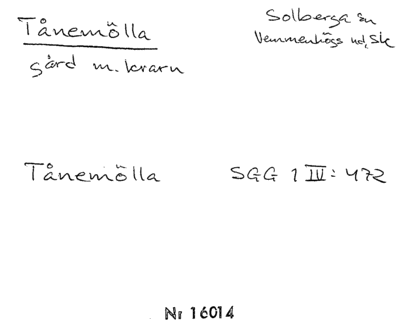 Tånemölla
Solberga sn
Vemmenhögs hd, Sk
gård m. kvarn
Tånemölla
SGG 1 IV: 472
Nr 16014